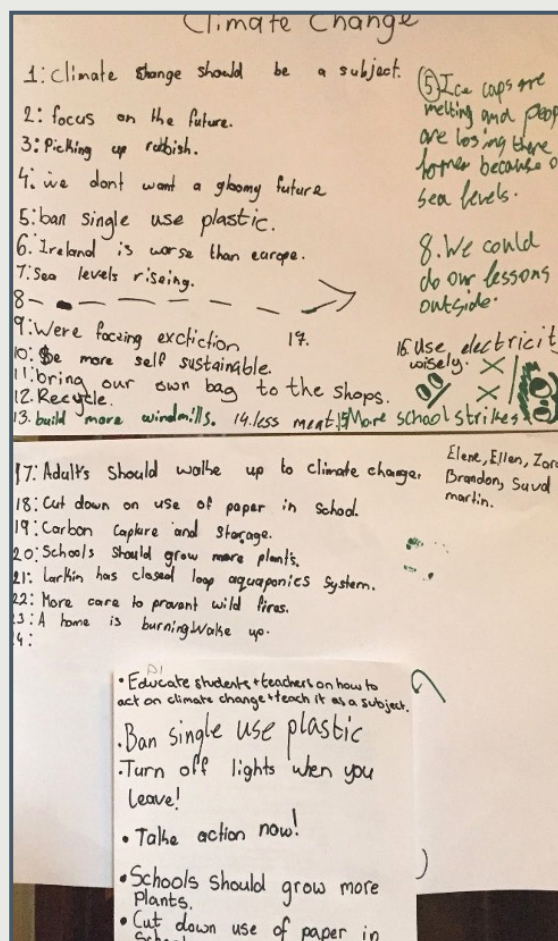 Climate Change
1: Climate change should be a subject.
2: focus on the future.
3: Picking up rubbish.
4: we dont want a gloomy future
5: ban single use plastic.
6. Ireland is worse than europe.
7: Sea levels riseing.
8
9: Were facing exctiction
17.
10: Be more self sustainable.
11: bring our own bag to the shops.
12. Recycle.
13. build more windmills. 14. less meat. 15 More school strikes
⑤ Ice caps are
melting and peop
are losing there
homes because o
sea levels.
8. We could
do our lessons
outside.
16. Use electricit
wisely.
17: Adult's should wake up to climate change.
18: Cut down on use of paper in school.
19: Carbon capture and storage.
20: Schools should grow more plants.
21: Larkin has closed loop aquaponics system.
22: More care to prevent wild fires.
3: A home is burning Wake up.
4:
Elene, Ellen, Zara
Brandon,
martin.
• Educate students + teachers on how to
act on climate change + teach it as a subject.
• Ban single use plastic
• Turn off lights when you
leave!
• Take action now!
• Schools should grow more
Plants.
• Cut down use of paper in
School